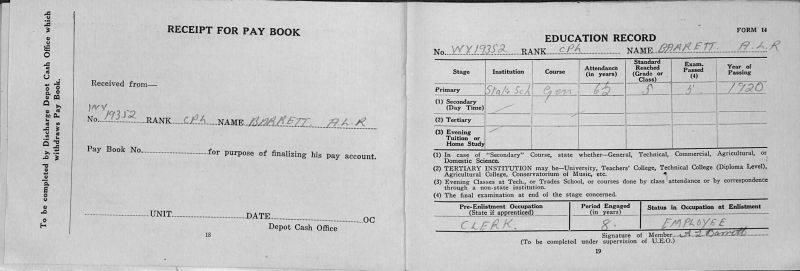 To be completed by Discharge Depot Cash Office which
withdraws Pay Book.
RECEIPT FOR PAY BOOK
Received from—
No. WX 19352 RANK CPL NAME BARRETT A.L.R
Pay Book No. for purpose of finalizing his pay account.
UNIT DATE OC
Depot Cash Office
18
FORM 14
EDUCATION RECORD
No. WX19352 RANK CPL NAME BARRETT. A.L.R
Stage Institution Course Attendance (in years) Standard Reached (Grade or Class) Exam. Passed (4) Year of Passing
Primary State Sch Gen 6½ 5 5 1920
(1) Secondary (Day Time)
(2) Tertiary
(3) Evening Tuition or Home Study
(1) In case of "Secondary" Course, state whether—General, Technical, Commercial, Agricultural, or
Domestic Science.
(2) TERTIARY INSTITUTION may be—University, Teachers' College, Technical College (Diploma Level),
Agricultural College, Conservatorium of Music, etc.
(3) Evening Classes at Tech., or Trades School, or courses done by class attendance or by correspondence
through a non-state institution.
(4) The final examination at end of the stage concerned.
Pre-Enlistment Occupation (State if apprenticed) Period Engaged (in years) Status in Occupation at Enlistment
CLERK. 8. EMPLOYEE
Signature of Member A L Barrett
(To be completed under supervision of U.E.O.)
19